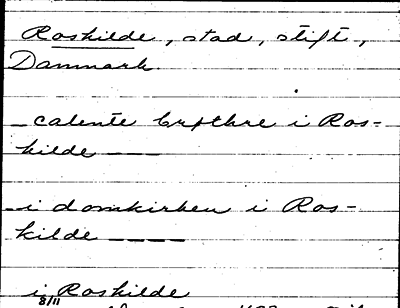 Roskilde, stad, stift,
Danmark
calente i Ros=
kilde
i domkirken i Ros-
kilde
i Roskilde
8/11